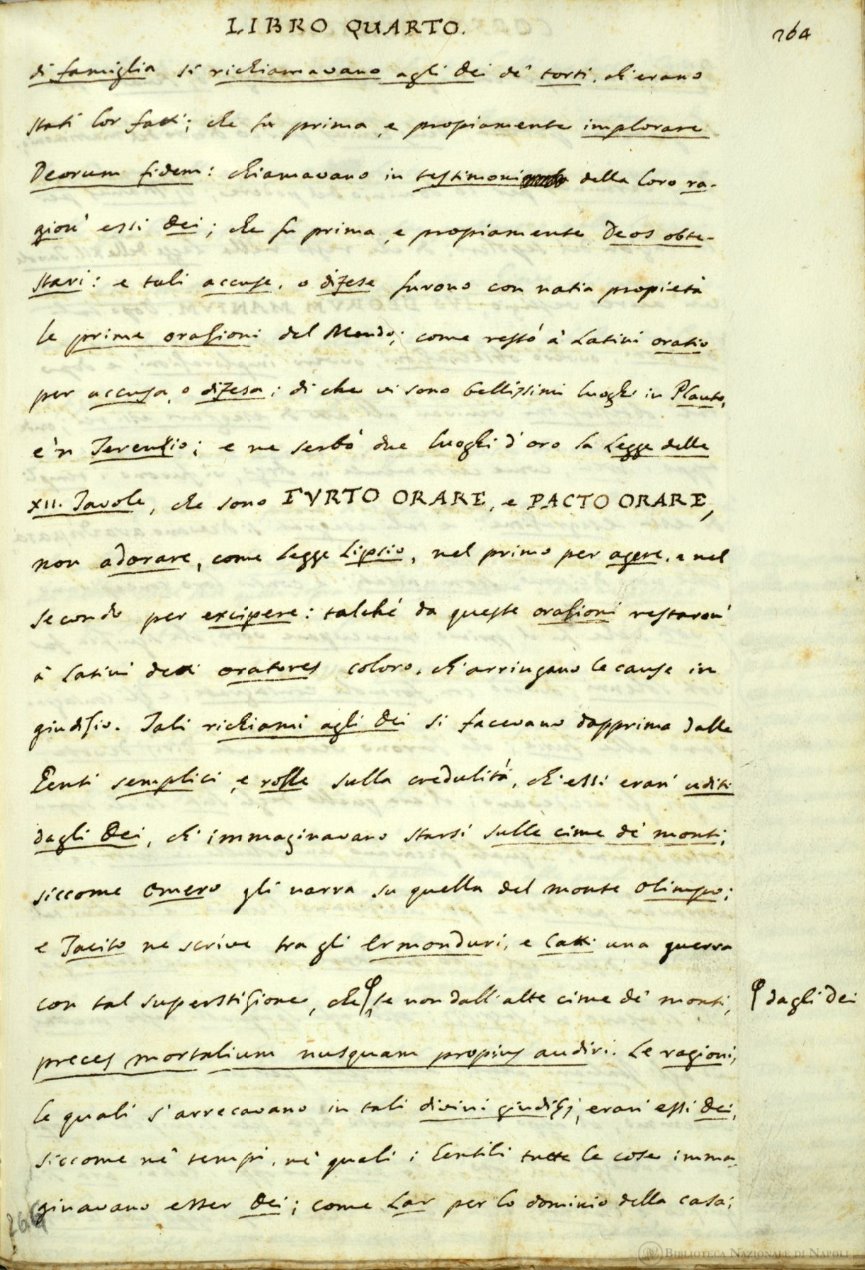 LIBRO QUARTO.
264
di famiglia si richiamavano agli Dei de' torti, ch'erano
stati lor fatti; che fu prima, e propiamente implorare
Deorum fidem: chiamavano in testimoni della loro ra-
gion' essi Dei; che fu prima, e propiamente Deos obte-
stari: e tali accuse, o difese furono con natia propietà
le prime orazioni del Mondo; come restò a' Latini oratio
per accusa, o difesa; di che vi sono bellissimi luoghi in Plauto,
e'n Terenzio; e ne serbò due luoghi d'oro la Legge delle
XII. Tavole, che sono FVRTO ORARE, e PACTO ORARE,
non adorare, come legge Lipsio, nel primo per agere, e nel
secondo per excipere: talché da queste orazioni restaron'
a' Latini detti oratores coloro, ch'arringano le cause in
giudizio. Tali richiami agli Dei si facevano dapprima dalle
Genti semplici, e rozze sulla credulità, ch'essi eran' uditi
dagli Dei, ch'immaginavano starsi sulle cime de' monti,
siccome Omero gli narra su quella del monte Olimpo;
e Tacito ne scrive tra gli Ermonduri, e Catti una guerra
con tal superstizione, che se non dall'alte cime de' monti,
dagli Dei
preces mortalium nusquam propius audiri. Le ragioni,
le quali s'arrecavano in tali divini giudizj, eran' essi Dei,
siccome ne' tempi, ne' quali i Gentili tutte le cose imma-
ginavano esser Dei; come Lar per lo dominio della casa;
264
BIBLIOTECA NAZIONALE DI NAPOLI